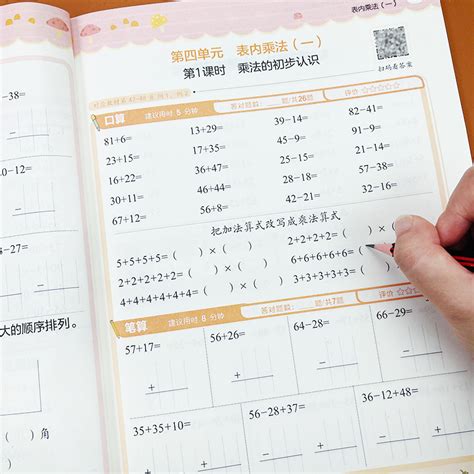 表内乘法(一)
第四单元 表内乘法(一)
第1课时 乘法的初步认识
扫码看答案
口算 建议用时 5 分钟 答对题数: 题/共26题 评价 ☆☆☆☆☆
81+6= 13+29= 39-14= 82-41=
23+15= 17+35= 28-21= 39-13=
16+22= 36+45= 38-14= 51-31=
30+11= 46+46= 57-44= 28-16=
67+12= 56+8= 42-21= 32-16=
把加法算式改写成乘法算式
5+5+5+5=( )×( ) 2+2+2+2=( )×( )
2+2+2+2+2=( )×( ) 6+6+6+6+6=( )
4+4+4+4+4+4=( )×( ) 3+3+3+3+3=( )
笔算 建议用时 8 分钟 答对题数: 题/共7题 评价 ☆☆☆
57+17= 56+26= 64-28= 66-29=
35+35+10= 56-28+37= 94-34-26= 36-12+48=
-38=
24-27=
大的顺序排列。
( )角